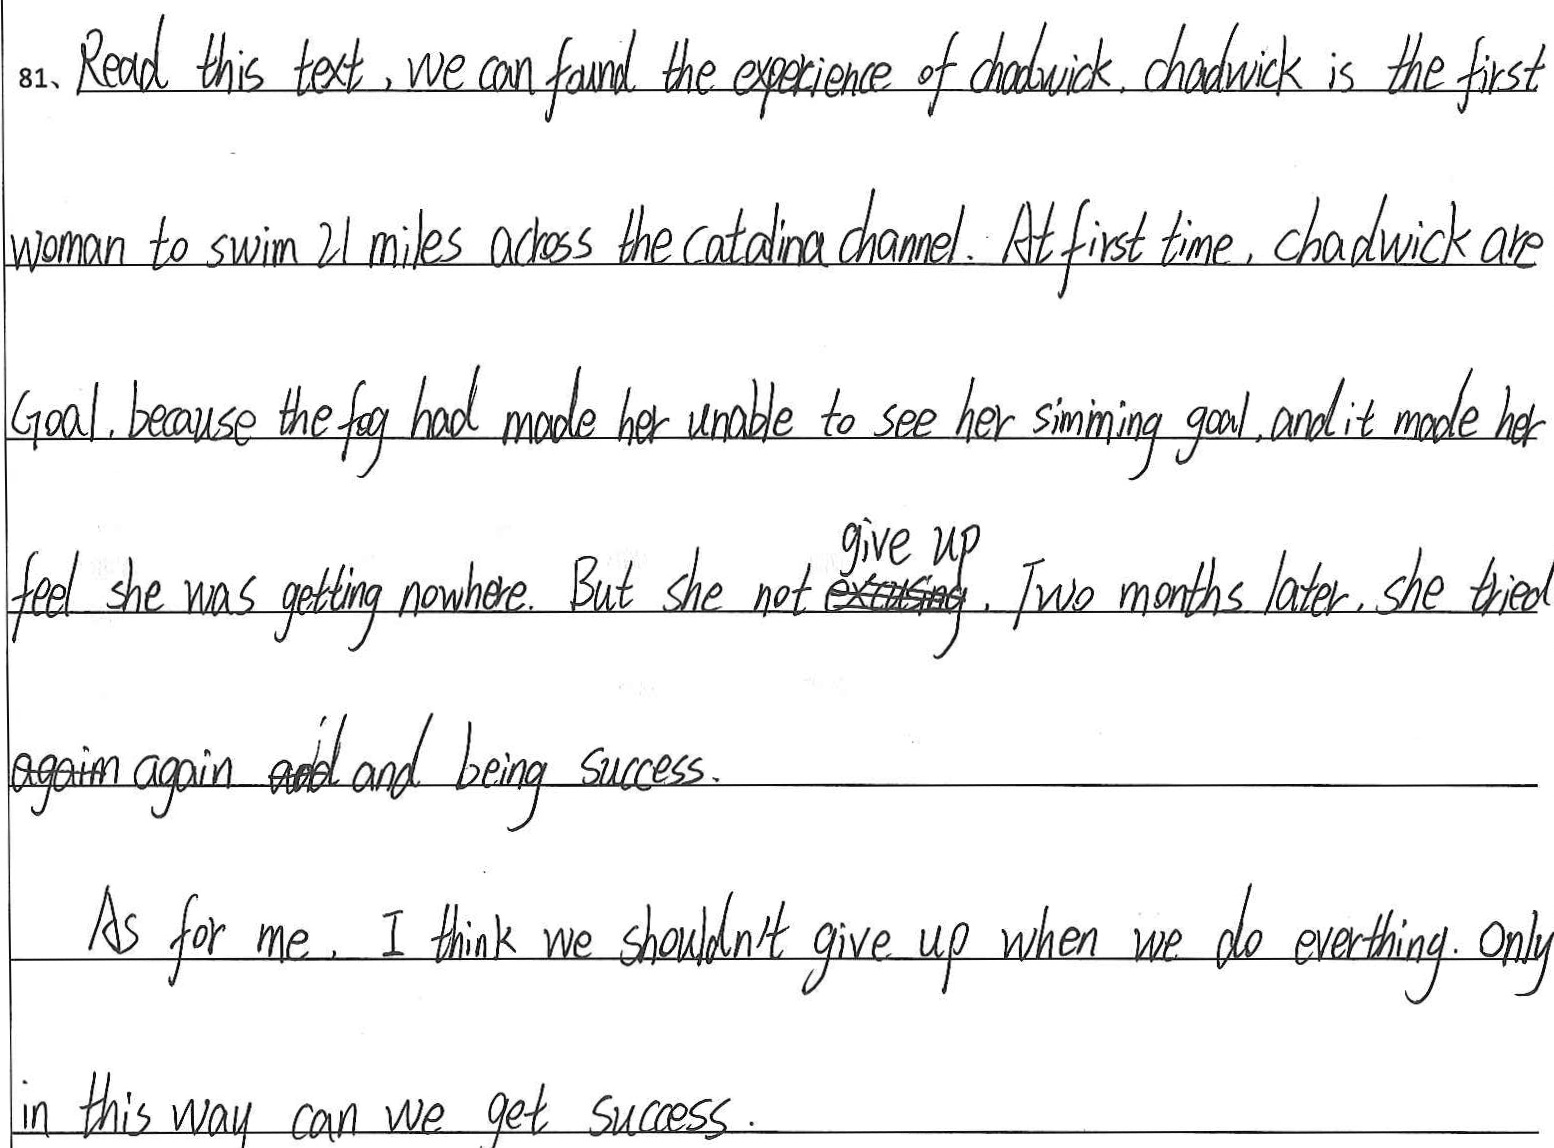 81、Read this text, we can found the experience of chadwick. chadwick is the first
woman to swim 21 miles across the Catalina channel. At first time, chadwick are
Goal. because the fog had made her unable to see her simming goal, and it made her
feel she was getting nowhere. But she not give up. Two months later, she tried
again and being success.
As for me, I think we shouldn't give up when we do everthing. Only
in this way can we get success.